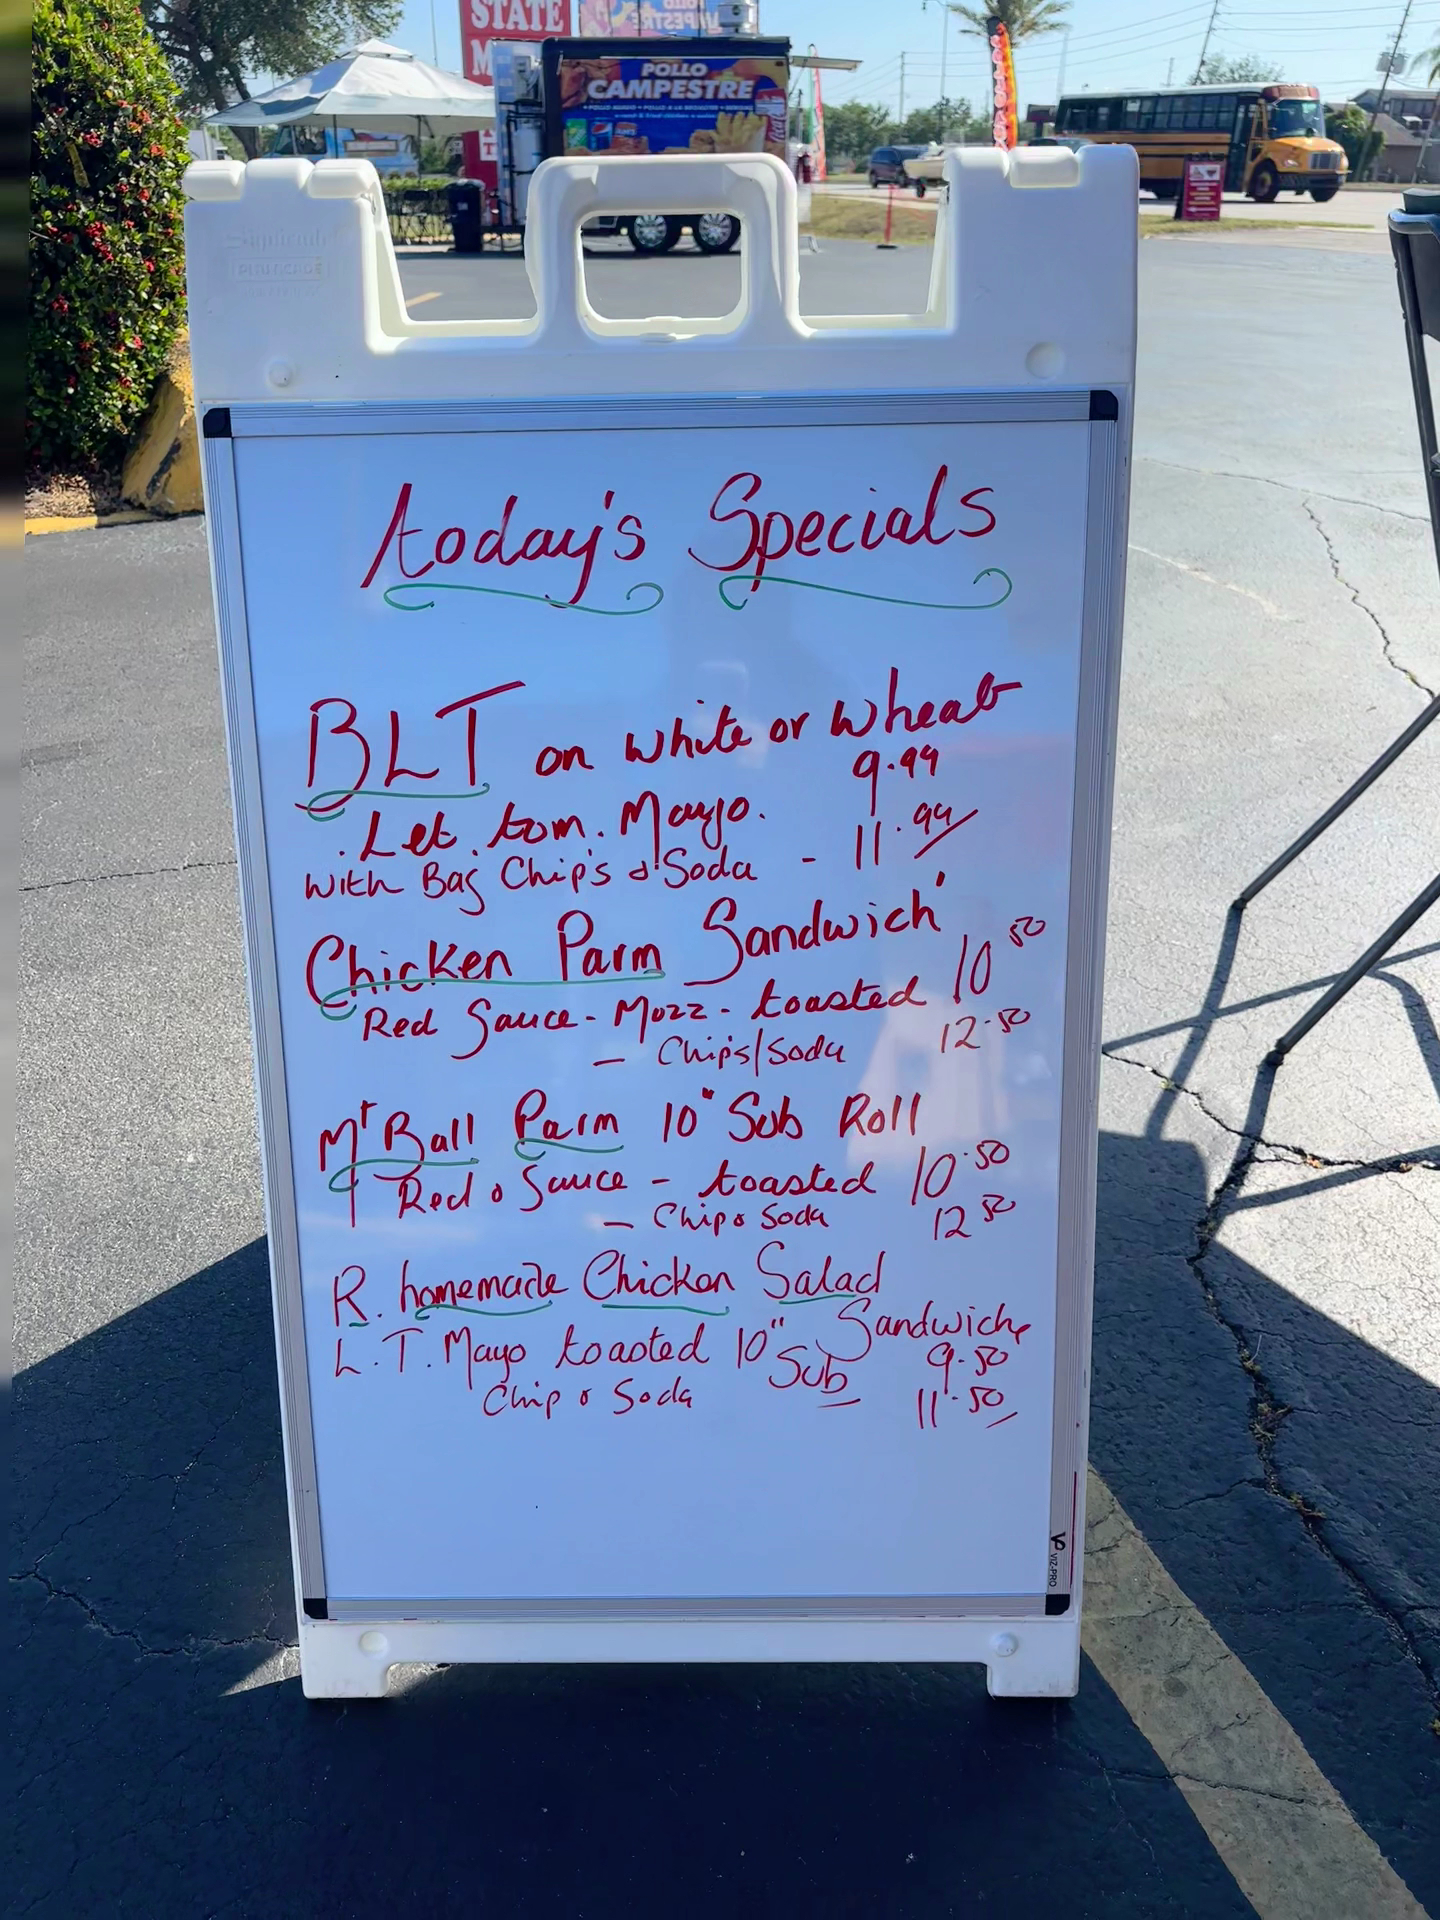 STATE
M
POLLO
CAMPESTRE
today's Specials
BLT on white or wheat
9.99
. Let. tom. Mayo.
with Bag Chip's & Soda - 11.99
Chicken Parm Sandwich
Red Sauce - Mozz - toasted 10 50
- Chips/Soda 12.50
Mt Ball Parm 10" Sub Roll
Red o Sauce - toasted 10.50
- Chip & Soda 12 50
R. homemade Chicken Salad
Sandwich
L.T. Mayo toasted 10" Sub 9.50
Chip & Soda 11.50
VIZ-PRO